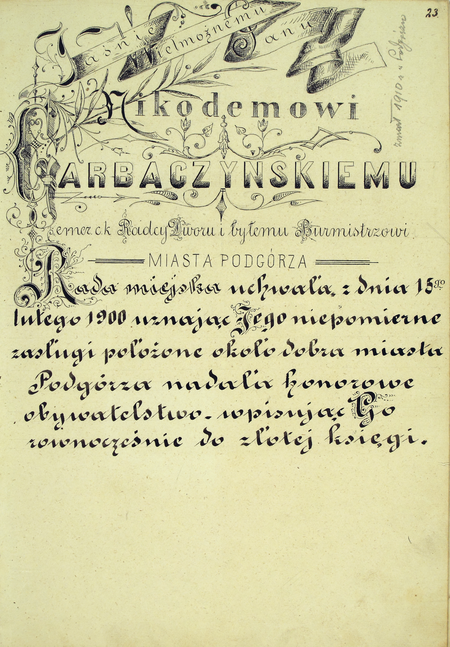 23
Jaśnie Wielmożnemu Panu
Nikodemowi
GARBACZYNSKIEMU
emer c.k. Radcy Dworu i byłemu Burmistrzowi
MIASTA PODGÓRZA
Rada miejska uchwałą z dnia 15go
lutego 1900 uznając Jego niepomierne
zasługi położone około dobra miasta
Podgórza nadała honorowe
obywatelstwo wpisując Go
rownocześnie do złotej księgi.
zmarł 1910 r. w